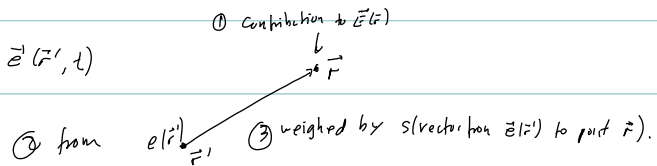 ① Contribution to E⃗(r⃗)
e⃗'(r⃗', t)
r⃗
② from e(r⃗')
r⃗'
③ weighed by s(vector from e⃗(r⃗') to point r⃗).